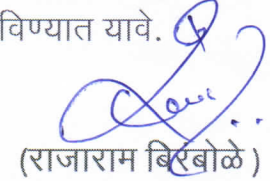 विण्यात यावे.
(राजाराम बिरबोळे)